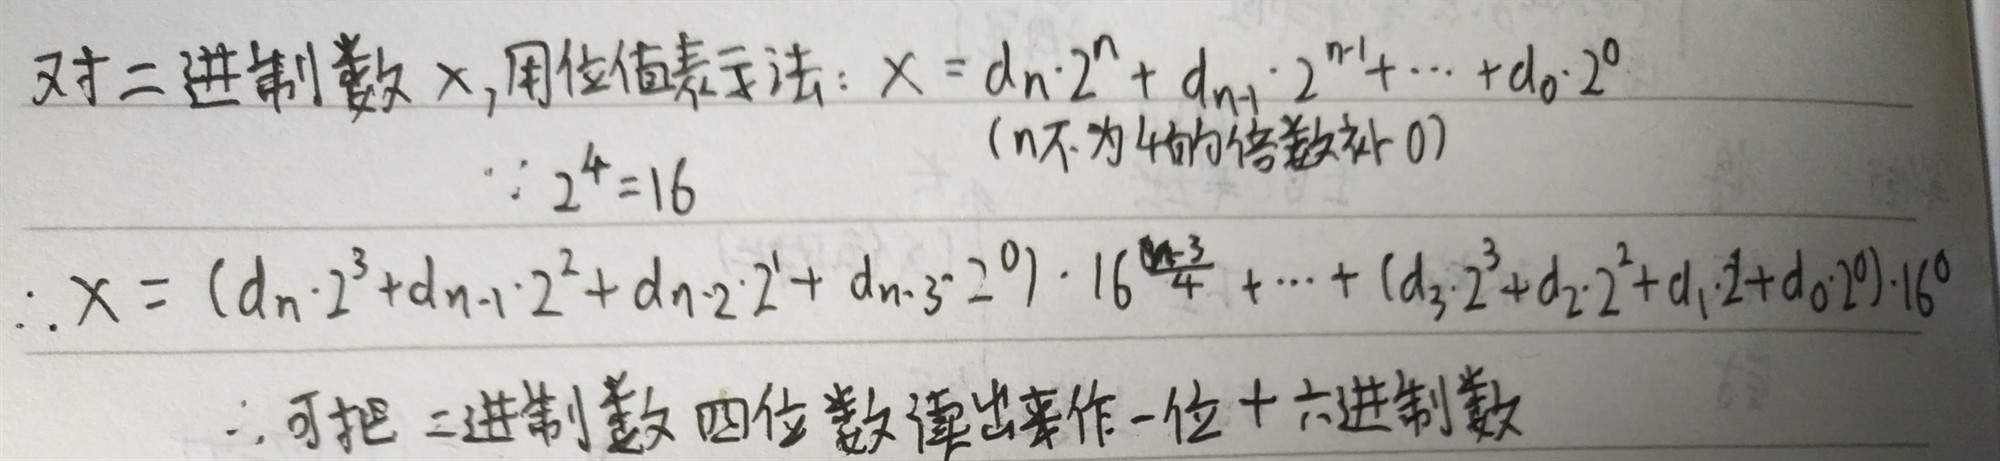 对二进制数x,用位值表示法: x = dn·2ⁿ + dn-1·2ⁿ⁻¹ + ··· + d₀·2⁰
(n不为4的倍数补0)
∵ 2⁴=16
∴ x = (dn·2³+dn-1·2²+dn-2·2¹+dn-3·2⁰)·16^((n-3)/4) + ··· + (d₃·2³+d₂·2²+d₁·2¹+d₀·2⁰)·16⁰
∴可把二进制数四位数读出来作一位十六进制数